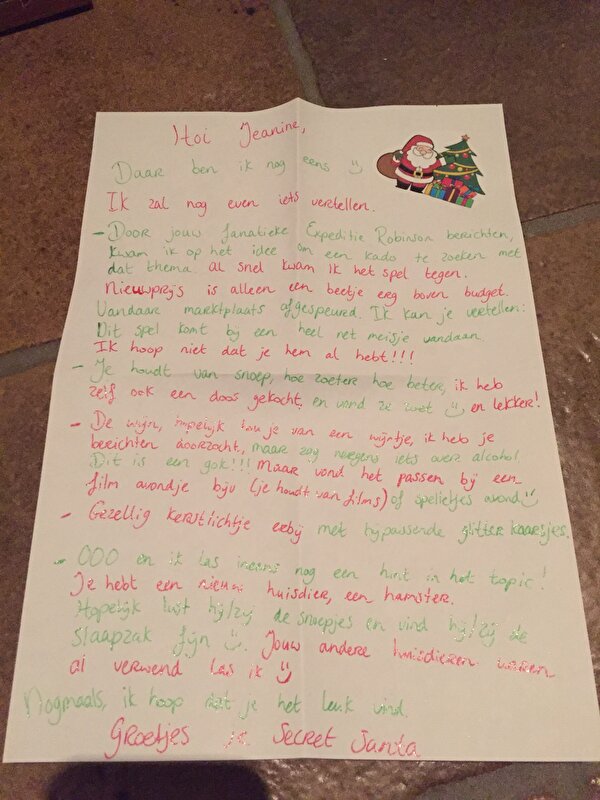 Hoi Jeanine,
Daar ben ik nog eens
Ik zal nog even iets vertellen.
- Door jouw fanatieke Expeditie Robinson berichten,
kwam ik op het idee om een kado te zoeken met
dat thema. Al snel kwam ik het spel tegen.
Nieuwprijs is alleen een beetje erg boven budget.
Vandaar marktplaats afgespeurd. Ik kan je vertellen:
Dit spel komt bij een heel net meisje vandaan.
Ik hoop niet dat je hem al hebt!!!
- Je houdt van snoep, hoe zoeter hoe beter, ik heb
zelf ook een doos gekocht, en vond ze zoet en lekker!
- De wijn, hopelijk hou je van een wijntje, ik heb je
berichten doorzocht, maar zag nergens iets over alcohol
Dit is een gok!!! Maar vond het passen bij een
film avondje bijv (je houdt van films) of spelletjes avond
- Gezellig kerstlichtje erbij met bijpassende glitter kaarsjes.
- OOO en ik las ineens nog een hint in het topic!
Je hebt een nieuw huisdier, een hamster.
Hopelijk lust hij/zij de snoepjes en vind hij/zij de
slaapzak fijn. Jouw andere huisdieren waren
al verwend las ik
Nogmaals, ik hoop dat je het leuk vind.
Groetjes je Secret Santa